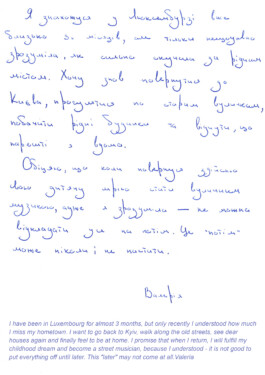 Я знаходжуся у Люксембурзі вже
близько 3х місяців, але тільки нещодавно
зрозуміла, як сильно скучила за рідним
містом. Хочу знов повернутися до
Києва, прогулятися по старим вуличкам,
побачити рідні будинки та відчути, що
нарешті я вдома.
Обіцяю, що коли повернуся здійсню
свою дитячу мрію стати вуличним
музикантом, адже я зрозуміла — не можна
відкладати усе на потім. Це "потім"
може ніколи і не настати.
Валерія
I have been in Luxembourg for almost 3 months, but only recently I understood how much
I miss my hometown. I want to go back to Kyiv, walk along the old streets, see dear
houses again and finally feel to be at home. I promise that when I return, I will fulfil my
childhood dream and become a street musician, because I understood - it is not good to
put everything off until later. This "later" may not come at all Valeria